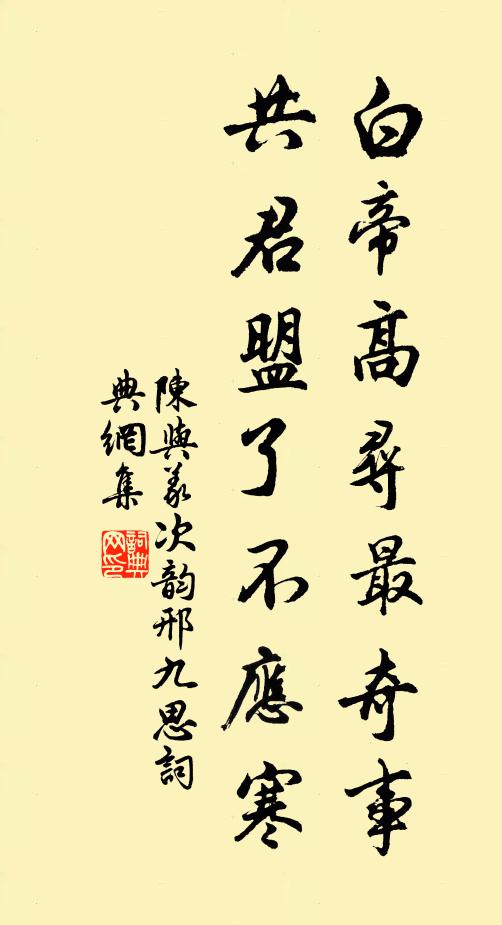 白帝高尋最奇事
共君盟了不應寒
陳與義次韵邢九思詞
典網集
詞典
网印